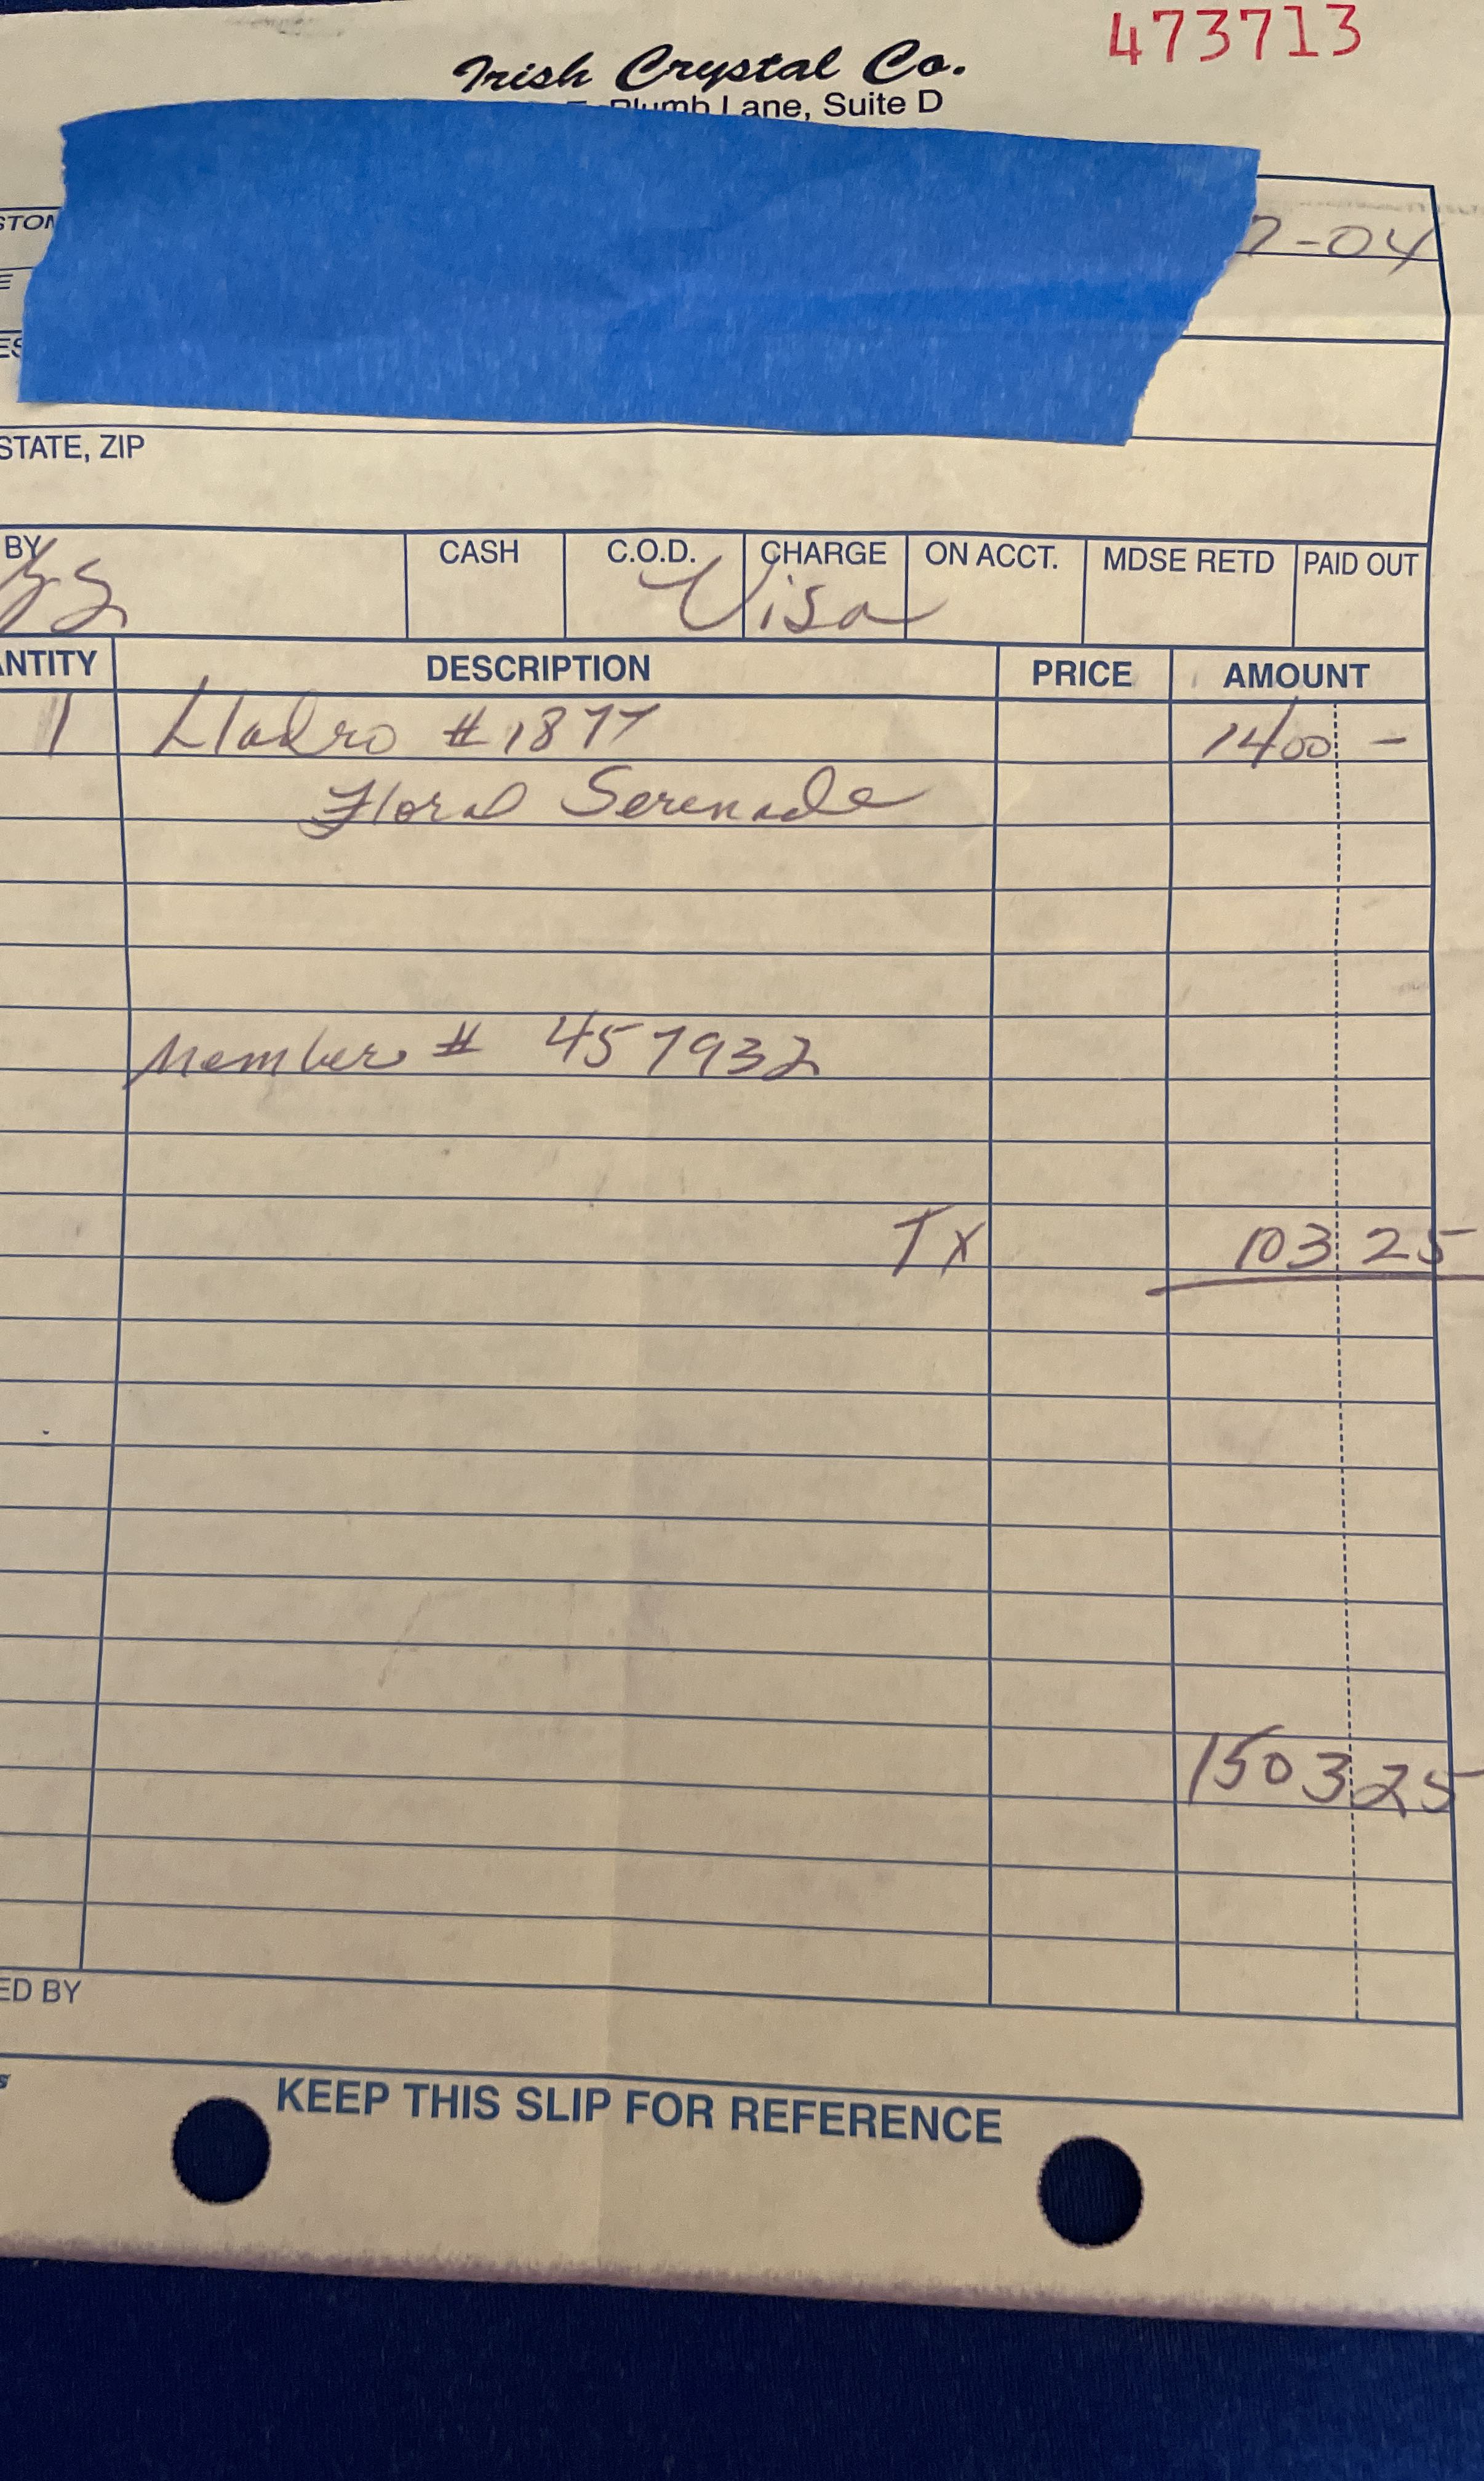 473713
Irish Crystal Co.
Plumb Lane, Suite D
-04
STATE, ZIP
BY CASH C.O.D. CHARGE ON ACCT. MDSE RETD PAID OUT
Visa
ANTITY DESCRIPTION PRICE AMOUNT
1 Lladro #1877 1400 -
Floral Serenade
Member # 457932
Tx 103 25
1503 25
ED BY
KEEP THIS SLIP FOR REFERENCE